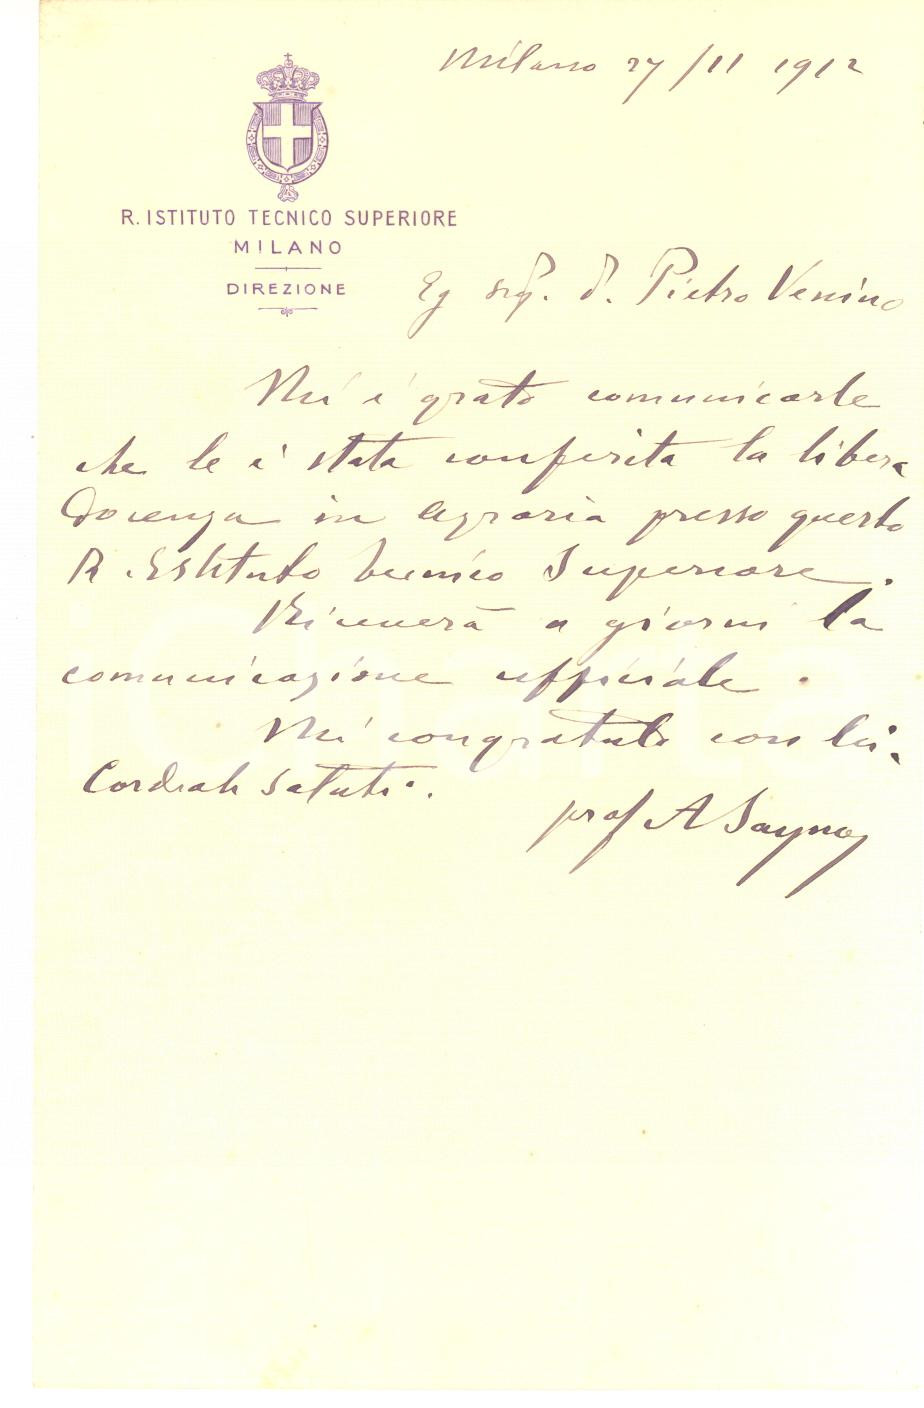 Milano 27/11 1912
R. ISTITUTO TECNICO SUPERIORE
MILANO
DIREZIONE
Eg sig. d. Pietro Venino
Mi è grato comunicarle
che le è stata conferita la libera
Docenza in Agraria presso questo
R. Istituto tecnico Superiore.
Riceverà a giorni la
comunicazione ufficiale.
Mi congratulo con lei.
Cordiali saluti.
prof A Sayno